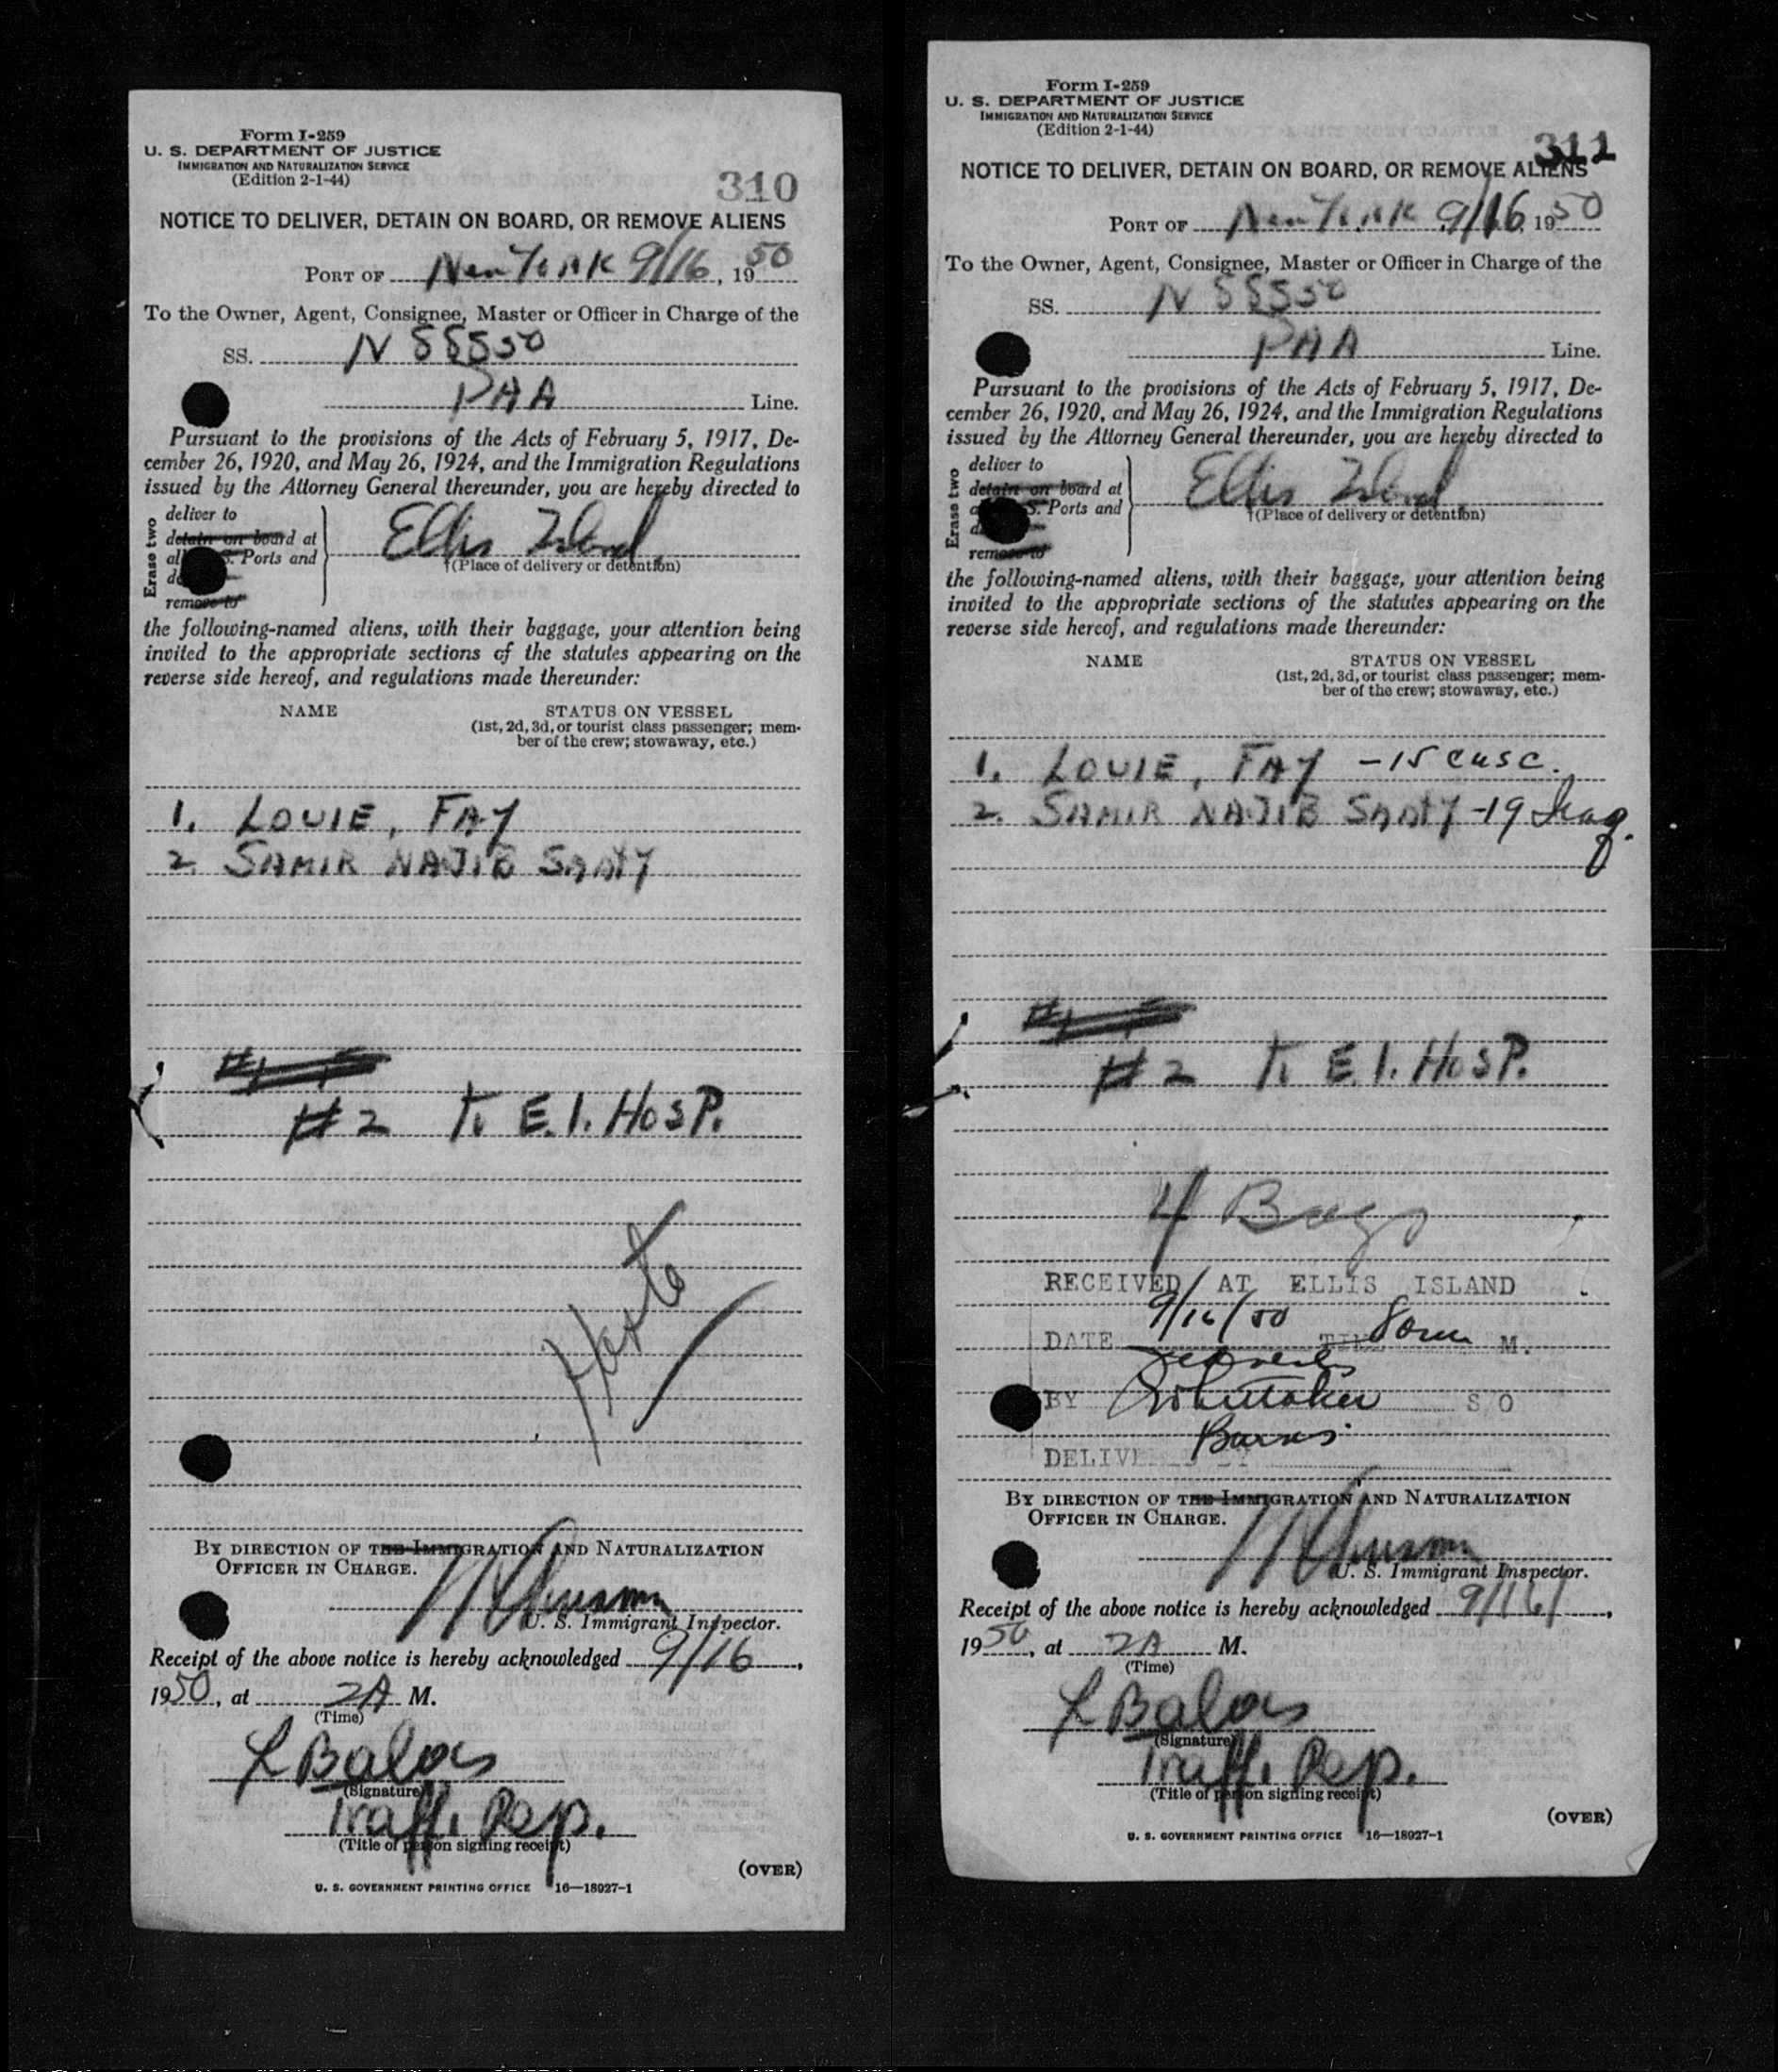 Form I-259
U. S. DEPARTMENT OF JUSTICE
IMMIGRATION AND NATURALIZATION SERVICE
(Edition 2-1-44)
310
NOTICE TO DELIVER, DETAIN ON BOARD, OR REMOVE ALIENS
PORT OF New York 9/16, 1950
To the Owner, Agent, Consignee, Master or Officer in Charge of the
SS. N 88550
PAA Line.
Pursuant to the provisions of the Acts of February 5, 1917, De-
cember 26, 1920, and May 26, 1924, and the Immigration Regulations
issued by the Attorney General thereunder, you are hereby directed to
Erase two
deliver to
detain on board at
Ports and
remove to
Ellis Island
†(Place of delivery or detention)
the following-named aliens, with their baggage, your attention being
invited to the appropriate sections of the statutes appearing on the
reverse side hereof, and regulations made thereunder:
NAME STATUS ON VESSEL
(1st, 2d, 3d, or tourist class passenger; mem-
ber of the crew; stowaway, etc.)
1. LOUIE, FAY
2. SAMIR NAJIB
#2 To E.I. HOSP.
BY DIRECTION OF THE IMMIGRATION AND NATURALIZATION
OFFICER IN CHARGE.
U. S. Immigrant Inspector.
Receipt of the above notice is hereby acknowledged 9/16,
1950, at 2A M.
(Time)
L Balas
(Signature)
Traff. Rep.
(Title of person signing receipt)
(OVER)
U. S. GOVERNMENT PRINTING OFFICE 16—18027-1
Form I-259
U. S. DEPARTMENT OF JUSTICE
IMMIGRATION AND NATURALIZATION SERVICE
(Edition 2-1-44)
311
NOTICE TO DELIVER, DETAIN ON BOARD, OR REMOVE ALIENS
PORT OF New York 9/16, 1950
To the Owner, Agent, Consignee, Master or Officer in Charge of the
SS. N 88550
PAA Line.
Pursuant to the provisions of the Acts of February 5, 1917, De-
cember 26, 1920, and May 26, 1924, and the Immigration Regulations
issued by the Attorney General thereunder, you are hereby directed to
Erase two
deliver to
detain on board at
Ports and
remove to
Ellis Island
†(Place of delivery or detention)
the following-named aliens, with their baggage, your attention being
invited to the appropriate sections of the statutes appearing on the
reverse side hereof, and regulations made thereunder:
NAME STATUS ON VESSEL
(1st, 2d, 3d, or tourist class passenger; mem-
ber of the crew; stowaway, etc.)
1. LOUIE, FAY -15
2. SAMIR NAJIB -19 Iraq.
#2 To E.I. HOSP.
4 Bags
RECEIVED AT ELLIS ISLAND
DATE 9/16/50 M.
BY Whittaker S O
BY DIRECTION OF THE IMMIGRATION AND NATURALIZATION
OFFICER IN CHARGE.
U. S. Immigrant Inspector.
Receipt of the above notice is hereby acknowledged 9/16/,
1950, at 2A M.
(Time)
L Balas
(Signature)
Traff. Rep.
(Title of person signing receipt)
(OVER)
U. S. GOVERNMENT PRINTING OFFICE 16—18027-1